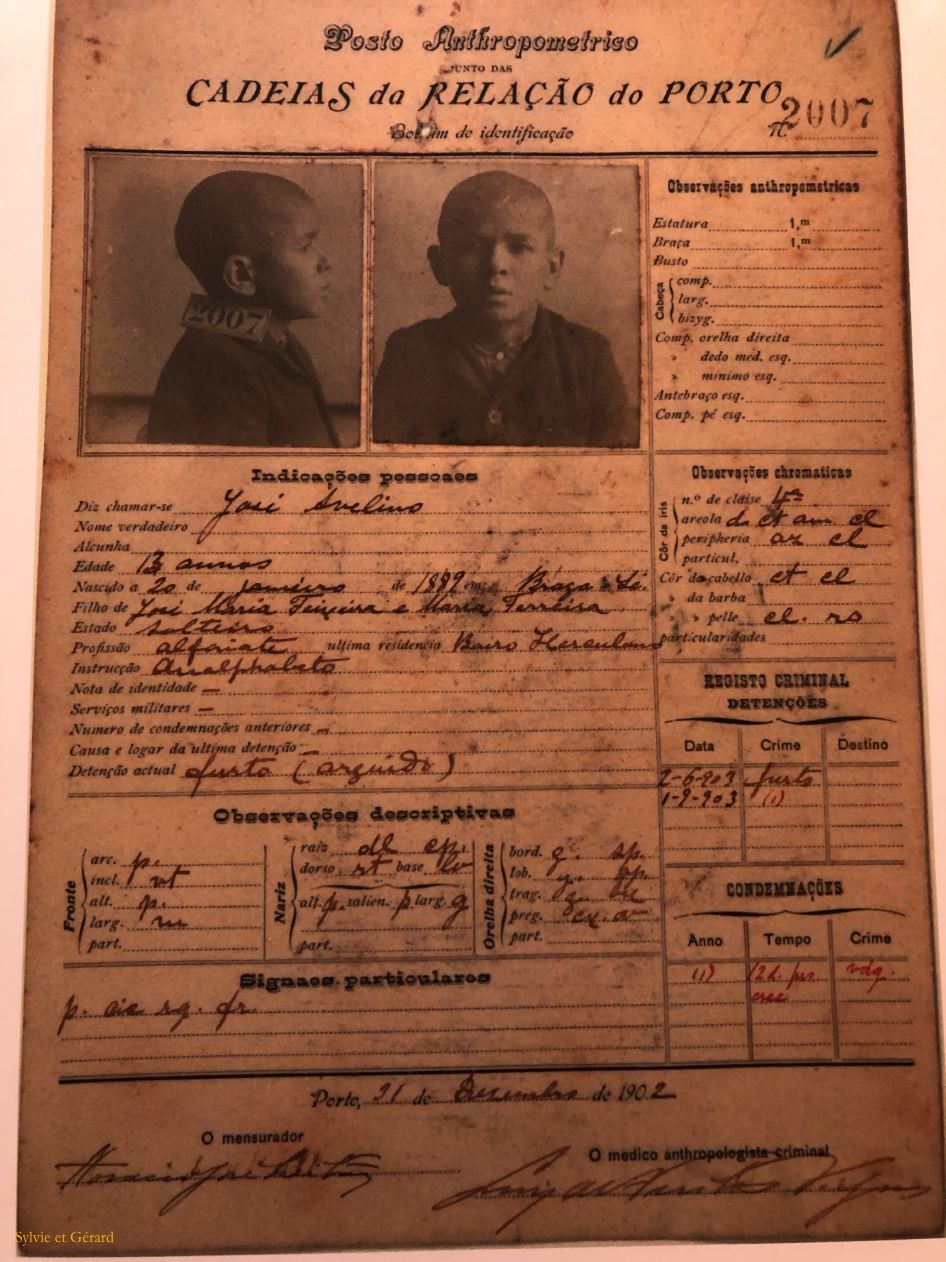 Posto Anthropometrico
JUNTO DAS
CADEIAS da RELAÇÃO do PORTO
Boletim de identificação
N.º 2007
2007
Observações anthropometricas
Estatura 1,m
Braça 1,m
Busto
Cabeça
comp.
larg.
bizyg.
Comp. orelha direita
» dedo med. esq.
» minimo esq.
Antebraço esq.
Comp. pé esq.
Indicações pessoaes
Diz chamar-se José Avelino
Nome verdadeiro
Alcunha
Edade 13 annos
Nascido a 20 de janeiro de 1889 em Braga
Filho de José Maria Teixeira e Maria Ferreira
Estado solteiro
Profissão alfaiate ultima residencia Bairo Herculano
Instrucção Analphabeto
Nota de identidade –
Serviços militares –
Numero de condemnações anteriores –
Causa e logar da ultima detenção –
Detenção actual furto (arguido)
Observações chromaticas
Côr da iris
n.º de classe 4ª
areola d. ct am cl
peripheria az cl
particul.
Côr do cabello ct cl
» da barba
» pelle cl. ro
particularidades
REGISTO CRIMINAL
DETENÇÕES
Data Crime Destino
2-6-903 furto
1-9-903 (1)
Observações descriptivas
Fronte
arc. p.
incl. vt
alt. p.
larg. m
part.
Nariz
raiz
dorso rt base
alt. p. salien. p larg. g
part.
Orelha direita
bord. g. sp.
lob.
trag.
preg.
part.
CONDEMNAÇÕES
Anno Tempo Crime
(1) 12 d. vdg.
Signaes particulares
p. cic rg. fr.
Porto, 31 de Dezembro de 1902
O mensurador
O medico anthropologista criminal
Sylvie et Gérard